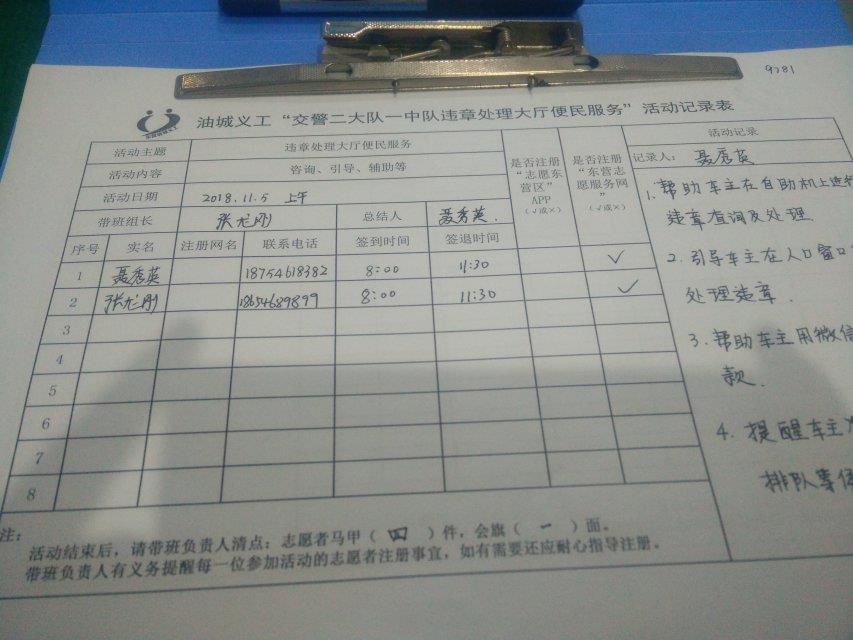 9781
油城义工“交警二大队一中队违章处理大厅便民服务”活动记录表
活动主题 违章处理大厅便民服务
活动内容 咨询、引导、辅助等
活动日期 2018.11.5 上午
带班组长 张龙刚 总结人 聂秀英.
序号 实名 注册网名 联系电话 签到时间 签退时间
是否注册“志愿东营区”APP（√或×）
是否注册“东营志愿服务网”（√或×）
1 聂秀英 18754618382 8:00 11:30 ✓
2 张龙刚 18654689899 8:00 11:30 ✓
3
4
5
6
7
8
活动记录
记录人： 聂秀英
1. 帮助车主在自助机上进行
违章查询及处理
2. 引导车主在人口窗口
处理违章.
3. 帮助车主用微信
款.
4. 提醒车主
排队
注：
活动结束后，请带班负责人清点：志愿者马甲（ 四 ）件，会旗（ 一 ）面。
带班负责人有义务提醒每一位参加活动的志愿者注册事宜，如有需要还应耐心指导注册。